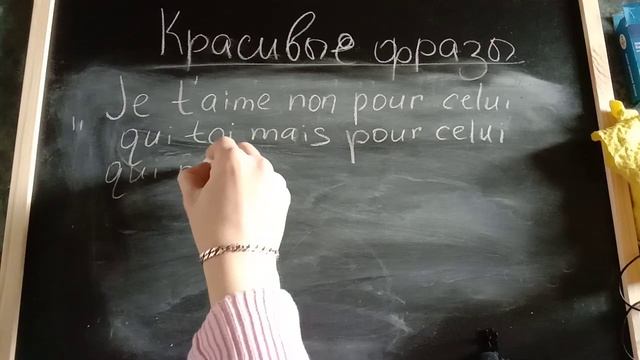 Красивые фразы
Je t'aime non pour celui
" qui toi mais pour celui
qui